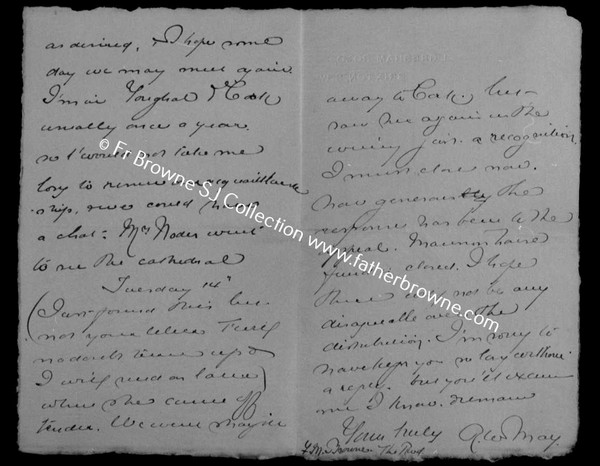 as desired, & I hope some
day we may meet again.
I'm in Youghal & Cork
usually once a year.
so t'would not take me
long to renew acquaintance
ship, & we could have
a chat: Mrs went
to see the cathedral
Tuesday 14th
(I just found this but
not your letter
no doubt turn up &
I will send on later)
when she came off
tender. We came
away to Cork, but
saw her again in the
coming a recognition.
I must close now.
how generously the
response has been to the
appeal. Mansion House
fund closed. I hope
there will not be any
disagreeable over the
distribution. I'm sorry to
have kept you so long without
a reply. but you'll excuse
me I know. remain
Yours truly
May
Browne The
© Fr Browne SJ Collection www.fatherbrowne.com